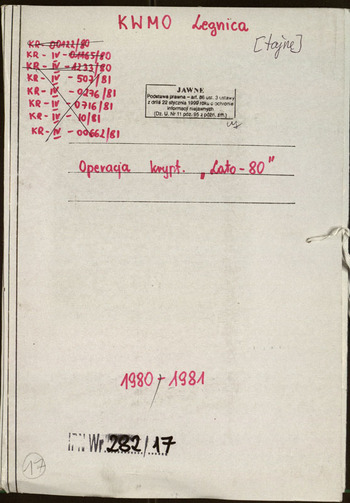 KWMO Legnica
[tajne]
KR-00122/80
KR-IV-01165/80
KR-IV-1233/80
KR-IV-507/81
KR-IV-0276/81
KR-IV 0716/81
KR-IV-10/81
KR-IV-00662/81
JAWNE
Podstawa prawna - art. 86 ust. 3 ustawy
z dnia 22 stycznia 1999 roku o ochronie
informacji niejawnych
(Dz. U. Nr 11 poz. 95 z późn. zm.)
Operacja krypt. "Lato-80"
1980-1981
IPN Wr 282/17
17